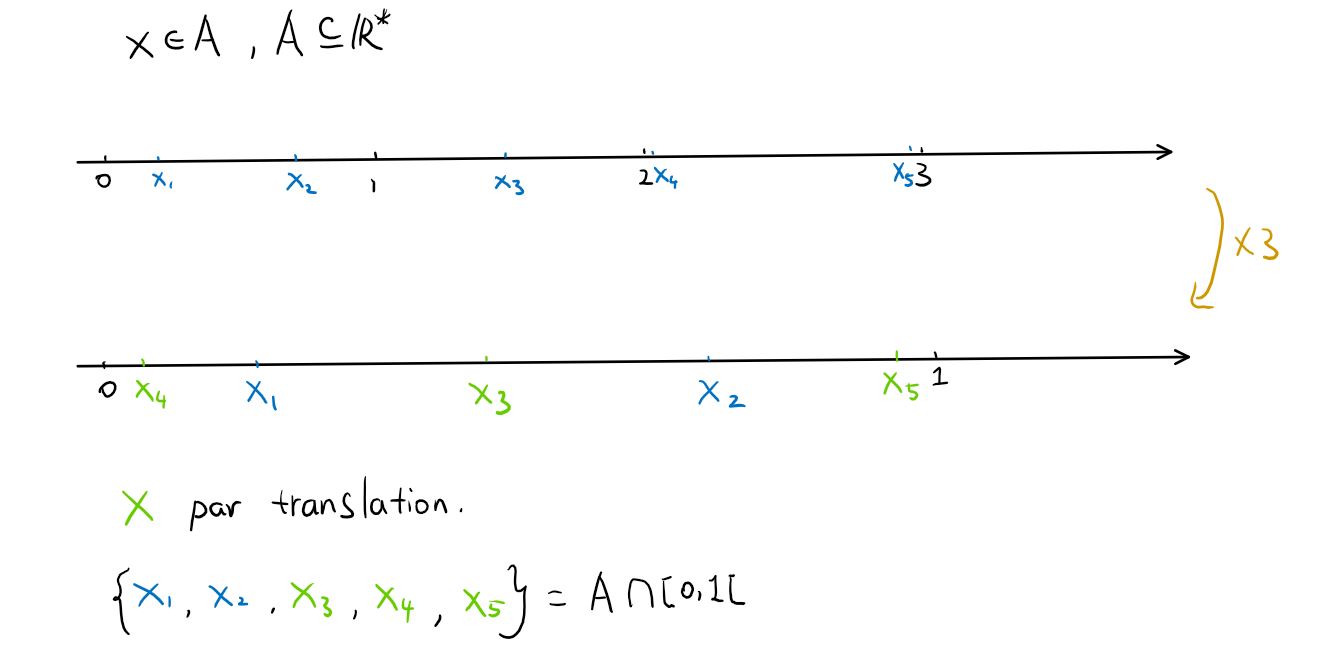 x ∈ A , A ⊆ ℝ*
0 x₁ x₂ 1 x₃ 2 x₄ x₅ 3
x 3
0 x₄ x₁ x₃ x₂ x₅ 1
x par translation.
{x₁, x₂, x₃, x₄, x₅} = A ∩ [0,1[